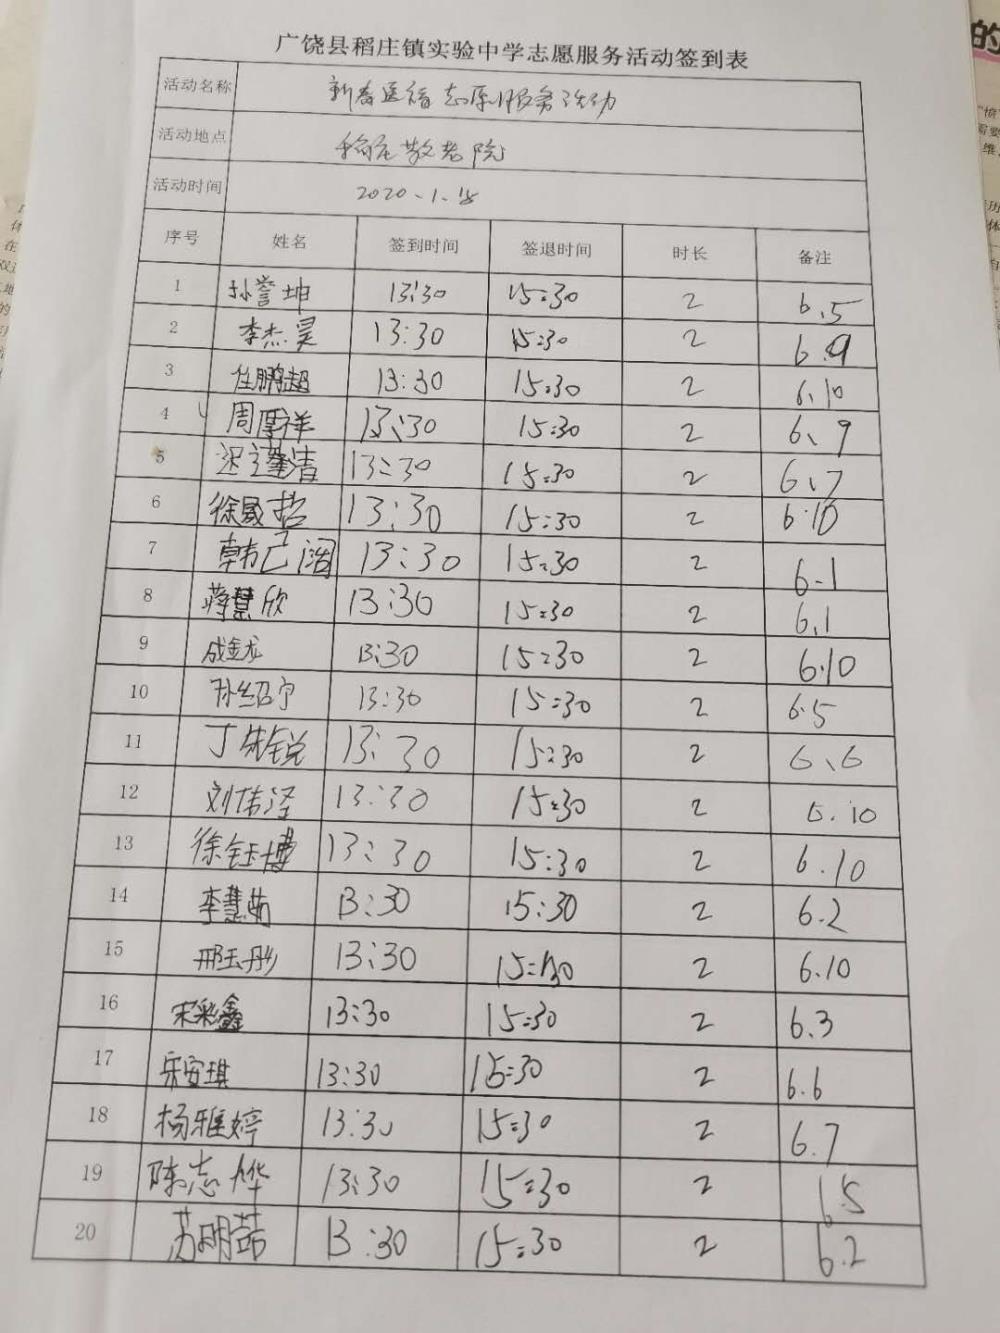 广饶县稻庄镇实验中学志愿服务活动签到表
活动名称 新春送福志愿服务活动
活动地点 稻庄敬老院
活动时间 2020.1.18
序号 姓名 签到时间 签退时间 时长 备注
1 孙誉坤 13:30 15:30 2 6.5
2 李杰昊 13:30 15:30 2 6.9
3 任鹏超 13:30 15:30 2 6.10
4 周厚祥 13:30 15:30 2 6.9
5 13:30 15:30 2 6.7
6 徐晟哲 13:30 15:30 2 6.10
7 13:30 15:30 2 6.1
8 蒋慧欣 13:30 15:30 2 6.1
9 成金龙 13:30 15:30 2 6.10
10 孙绍宁 13:30 15:30 2 6.5
11 丁朱锐 13:30 15:30 2 6.6
12 13:30 15:30 2 6.10
13 徐钰博 13:30 15:30 2 6.10
14 李慧茹 13:30 15:30 2 6.2
15 邢玉彤 13:30 15:30 2 6.10
16 宋彩鑫 13:30 15:30 2 6.3
17 宋安琪 13:30 15:30 2 6.6
18 杨雅婷 13:30 15:30 2 6.7
19 陈志烨 13:30 15:30 2 6.5
20 苏明喆 13:30 15:30 2 6.2